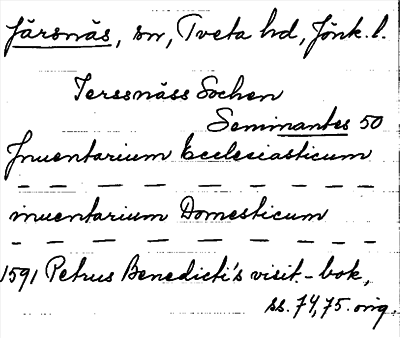 Järsnäs, sn, Tveta hd, Jönk. l.
Jerssnäss Sochen
Seminantes 50
Inuentarium Ecclesiasticum
— — — — — — — — — — — —
inuentarium Domesticum
— — — — — — — — — — — —
1591 Petrus Benedicti's visit.-bok,
ss. 74, 75. orig.